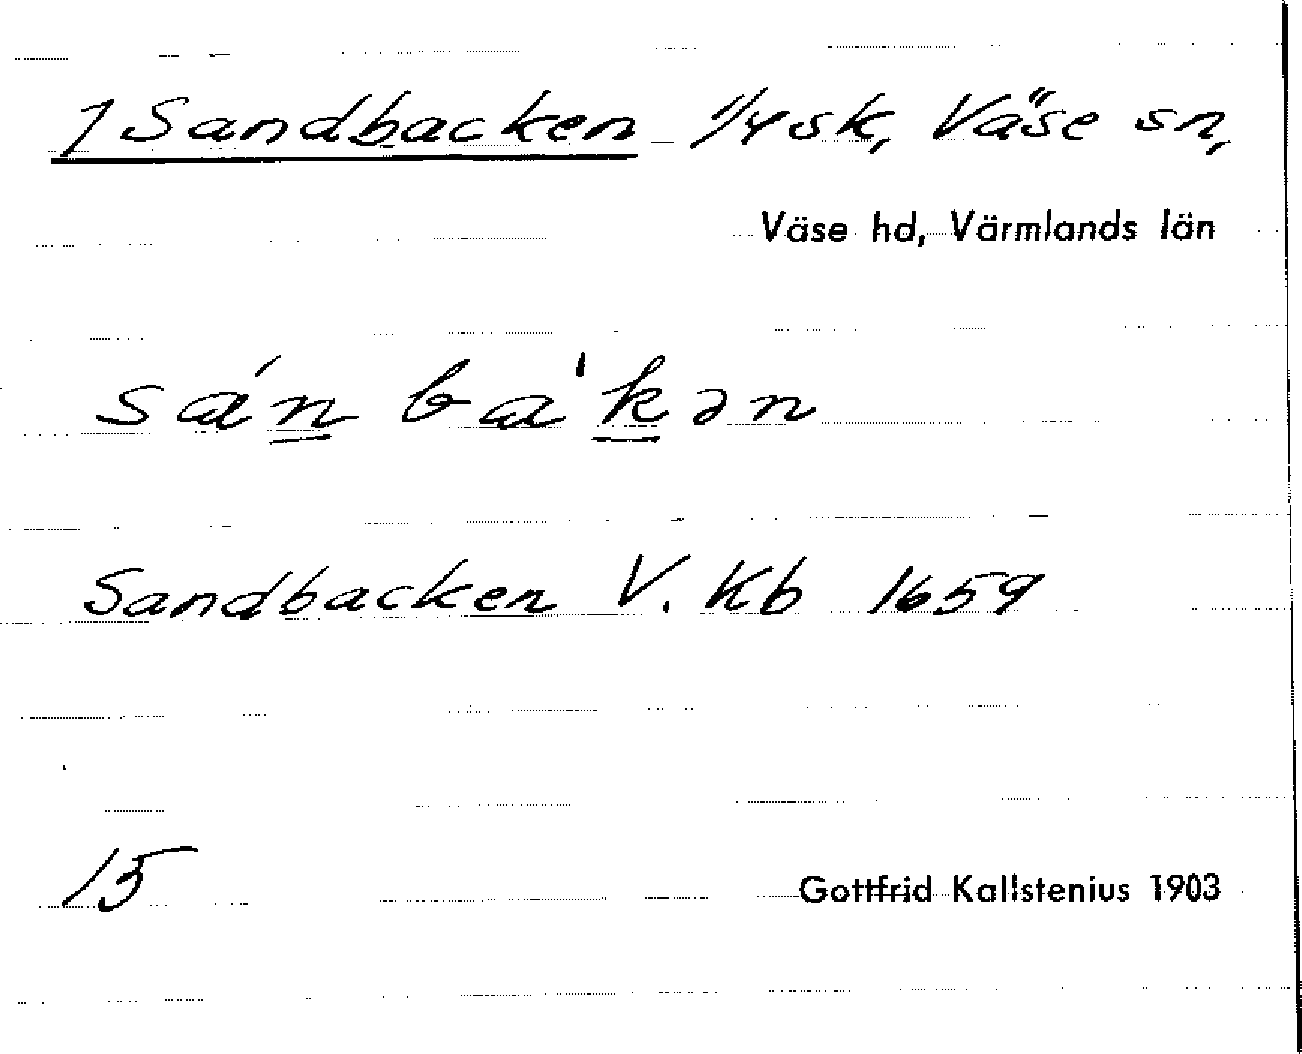 1 Sandbacken 1/4 sk, Väse sn,
Väse hd, Värmlands län
sán ba'kən
Sandbacken V. Kb 1659
15
Gottfrid Kallstenius 1903